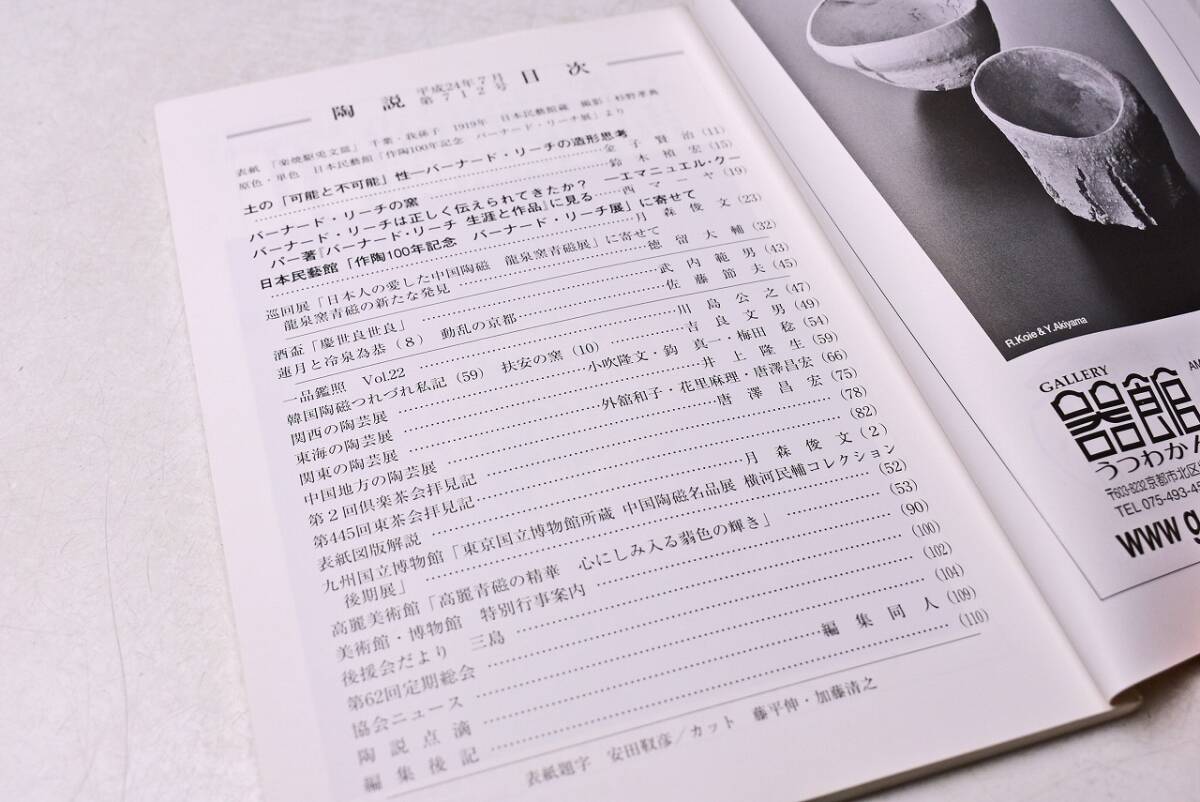 陶 説 平成24年7月 第712号 目 次
表紙 「楽焼駆兎文皿」 千葉・我孫子 1919年 日本民藝館蔵 撮影/杉野孝典
原色・単色 日本民藝館「作陶100年記念 バーナード・リーチ展」より
土の「可能と不可能」性―バーナード・リーチの造形思考
金 子 賢 治 (11)
バーナード・リーチの窯 鈴 木 禎 宏 (15)
バーナード・リーチは正しく伝えられてきたか? ―エマニュエル・クー
パー著『バーナード・リーチ 生涯と作品』に見る 西 マ ー ヤ (19)
日本民藝館「作陶100年記念 バーナード・リーチ展」に寄せて
月 森 俊 文 (23)
巡回展「日本人の愛した中国陶磁 龍泉窯青磁展」に寄せて
龍泉窯青磁の新たな発見 徳 留 大 輔 (32)
酒盃「慶世良世良」 武 内 範 男 (43)
蓮月と冷泉為恭(8) 動乱の京都 佐 藤 節 夫 (45)
一品鑑照 Vol.22 川 島 公 之 (47)
韓国陶磁つれづれ私記(59) 扶安の窯(10) 吉 良 文 男 (49)
関西の陶芸展 小吹隆文・鈎 真一・梅田 稔 (54)
東海の陶芸展 井 上 隆 生 (59)
関東の陶芸展 外舘和子・花里麻理・唐澤昌宏 (66)
中国地方の陶芸展 唐 澤 昌 宏 (75)
第2回倶楽茶会拝見記 (78)
第445回東茶会拝見記 (82)
表紙図版解説 月 森 俊 文 (2)
九州国立博物館「東京国立博物館所蔵 中国陶磁名品展 横河民輔コレクション
後期展」 (52)
高麗美術館「高麗青磁の精華 心にしみ入る翡色の輝き」 (53)
美術館・博物館 特別行事案内 (90)
後援会だより 三島 (100)
第62回定期総会 (102)
協会ニュース (104)
陶 説 点 滴 編 集 同 人 (109)
編 集 後 記 (110)
表紙題字 安田靫彦/カット 藤平伸・加藤清之
R.Koie & Y.Akiyama
GALLERY
器館
うつわかん
〒603-8232京都市北区
TEL 075-493-45
www.g